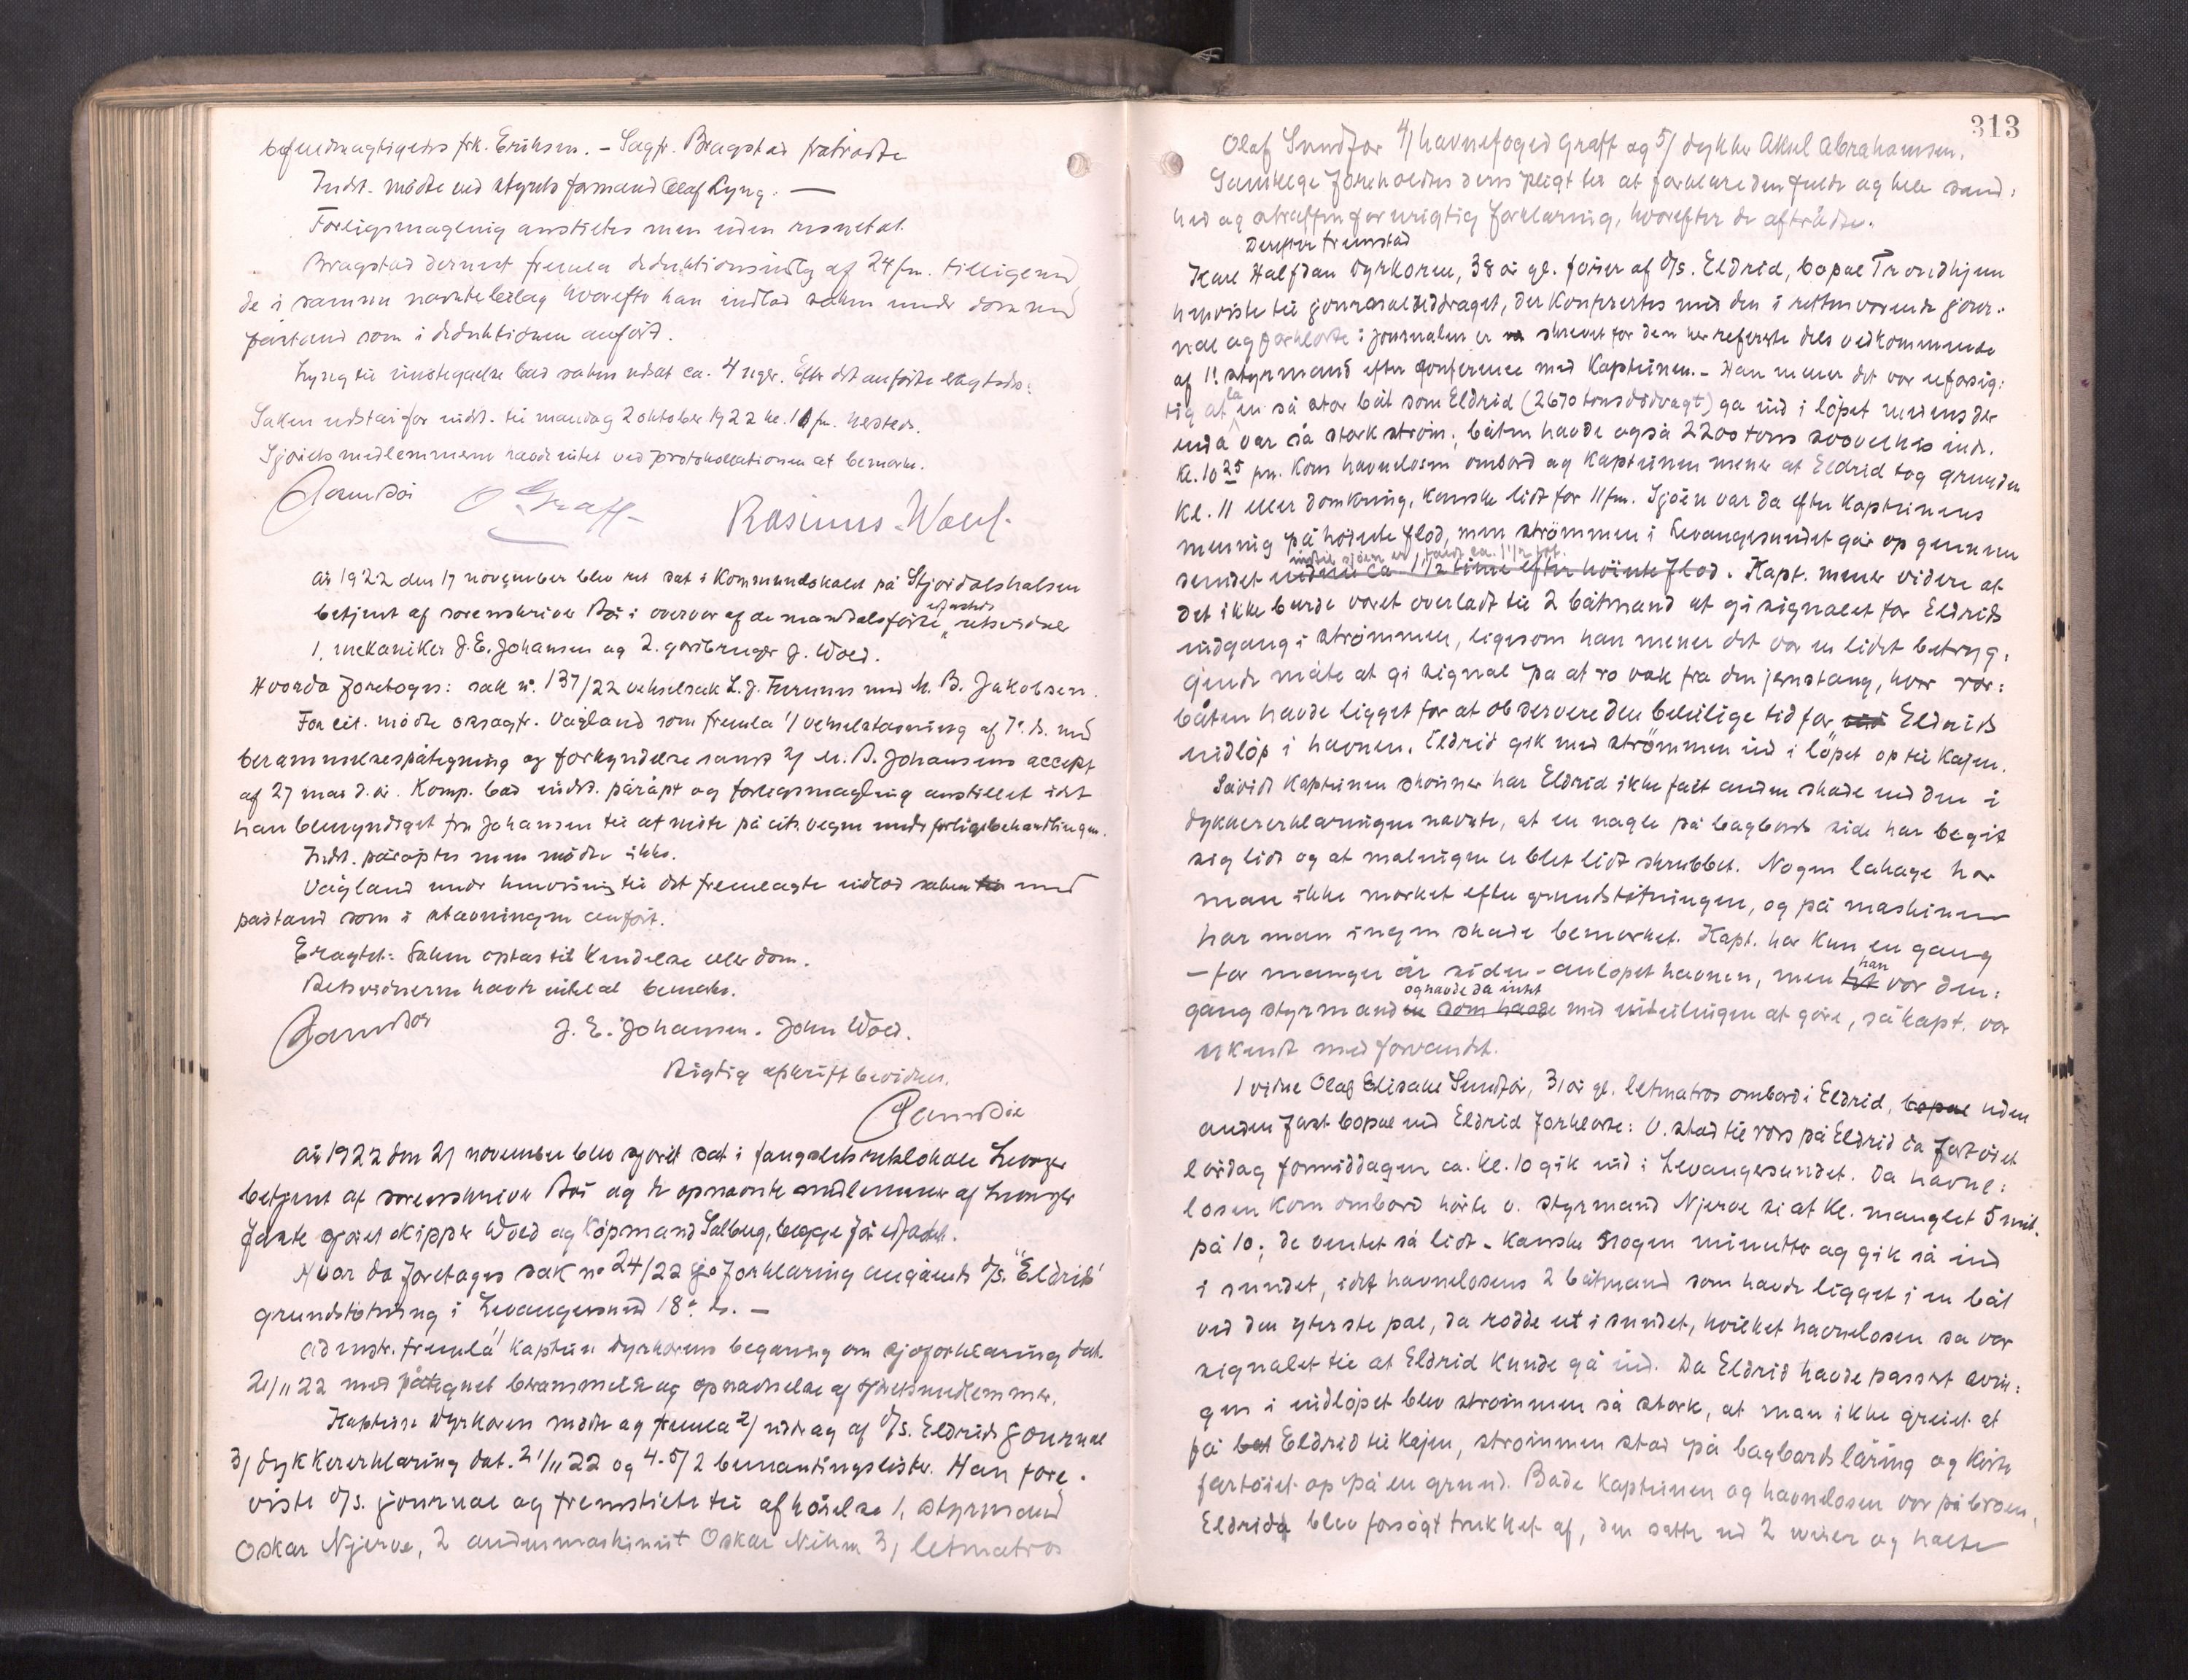 befuldmægtigets frk. Eriksen. – Sagfr. Bragstad fratrådte
Indst. mødte ved styrets formand Olaf Lyng. —
Forligsmægling anstilles men uden resultat.
Bragstad dernæst fremla deduktionsindlæg af 24 fm. tilligemed
de i samme nævnte bilag hvorefter han indlod saken under dom med
påstand som i deduktionen anført.
Lyng til imøtegåelse bad saken udsat ca. 4 uger. Efter det anførte eragtedes:
Saken udstår for indst. til mandag 2 oktober 1922 kl. 10 fm. hersteds.
Sjøretsmedlemmerne havde intet ved protokollationen at bemærke.
O Graff Rasmus Woll.
År 1922 den 17 november blev ret sat i Kommunelokalet på Stjørdalshalsen
betjent af sorenskriver Bøi i overvær af de mandalsførte edfæstede retsvidner
1. mekaniker J. E. Johansen og 2. gårdbruger J. Wold.
Hvorda foretoges: sak nr. 137/22 vekselsak L. J. mod M. B. Jakobsen.
For cit. mødte orsagfr. Vågland som fremla 1/ vekselstævning af 7. ds. med
berammelsespåtegning og forkyndelse samt 2/ M. B. Johansens accept
af 27 mai d. å. Komp. bad indst. påråpt og forligsmægling anstillet idet
han bemyndiget fra Johansen til at møte på cits. vegne under forligsbehandlingen.
Indst. påråptes men mødte ikke.
Vågland under henvisning til det fremlagte indlod saken til med
påstand som i stævningen anført.
Eragtet: Saken optas til kendelse eller dom.
Retsvidnerne havde intet at bemerke.
J. E. Johansen. John Wold.
Rigtig afskrift bevidnes.
År 1922 den 21 november blev sjøret sat i fængslets retslokale Levanger
betjent af sorenskriver Bøi og de opnævnte medlemmer af Levanger
faste sjøret skipper Wold og kjøpmand Salberg, begge før edfæstet.
Hvor da foretages sak no 24/22 sjøforklaring angående D/s. "Eldrid"
grundstøtning i Levangersund 18. ds. —
Adminstr. fremla 1/ kaptein Dyrkorens begæring om sjøforklaring dat.
21/11 22 med påtegnet berammelse og opnævnelse af sjøretsmedlemmer.
Kaptein Dyrkoren mødte og fremla 2/ utdrag af D/s. Eldrids journal
3/ dykkererklæring dat. 21/11 22 og 4-5/ 2 bemantingslister. Han fore-
viste D/s. journal og fremstillete til afhørelse 1. styrmand
Oskar Njerve, 2 andenmaskinist Oskar Nihm 3/ letmatros
313
Olaf Sundfør 4/ havnefoged Graff og 5/ dykker Aksel Abrahamsen.
Samtlige foreholdtes deres pligt til at forklare den fulde og hele sand:
hed og straffen for urigtig forklaring, hvorefter de aftrådte.
Derefter fremstod
Karl Halfdan Dyrkoren, 38 år gl. fører af D/s. Eldrid, bopæl Trondhjem
henviste til journaluddraget, der konfrertes med den i retten værende jour-
nal og forklarte: Journalen er skrevet for den her refererte dels vedkommende
af 1. styrmand efter konference med Kapteinen. – Han mener det var uforsig:
tig at la en så stor båt som Eldrid (2670 tons dødvægt) ga ind i løpet medens der
enda var så stærk strøm; båten havde også 2200 tons inde.
Kl. 10 25 fm. kom havnelosen ombord og Kapteinen mener at Eldrid tog grunden
kl. 11 eller deromkring, kanske lidt før 11 fm. Sjøen var da efter Kapteinens
mening på høieste flod, men strømmen i Levangersundet går op gennem
indtil sjøen er faldt ca. 1 1/2 fot.
sundet indtil ca 1 1/2 time efter høieste flod. Kapt. mener videre at
det ikke burde været overladt til 2 båtmænd at gi signalet for Eldrids
indgang i strømmen, ligesom han mener det var en lidet betryg:
gende måte at gi signal på at ro væk fra den jernstang, hvor ror:
båten havde ligget for at observere den beleilige tid for Eldrids
indløp i havnen. Eldrid gik med strømmen ind i løpet op til Kajen.
Såvidt Kapteinen skønner har Eldrid ikke fått anden skade end den i
dykkererklæringen nævnte, at en nagle på bagbords side har begit
sig lidt og at malingen er blet lidt skrubbet. Nogen lækage har
man ikke mærket efter grundstøtningen, og på maskinen
har man ingen skade bemærket. Kapt. har kun en gang
– for mange år siden – anløpet havnen, men han var den:
gang styrmand og havde da intet som havde med indseilingen at gøre, så kapt. var
ukendt med farvandet.
1 vidne Olaf Elisæus Sundfør, 31 år gl. letmatros ombord i Eldrid, bopæl uden
anden fast bopæl end Eldrid forklarte: V. stod til rors på Eldrid da fartøiet
lørdag formiddagen ca. kl. 10 gik ind i Levangersundet. Da havne:
losen kom ombord hørte v. styrmand Njerve si at kl. manglet 5 mit.
på 10; de ventet så lidt – kanske nogen minutter og gik så ind
i sundet, idet havnelosens 2 båtmænd som havde ligget i en båt
ved den yterste pæl, da rodde ut i sundet, hvilket havnelosen sa var
signalet til at Eldrid kunde gå ind. Da Eldrid havde passert svin:
gen i indløpet blev strømmen så stærk, at man ikke greiet at
få bå Eldrid til kajen, strømmen stod på bagbords låring og kørte
fartøiet op på en grund. Både Kapteinen og havnelosen var på broen,
Eldrid blev forsøgt trukket af, den satte ud 2 wirer og halte